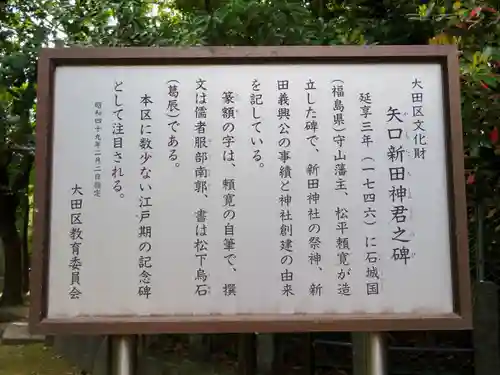 大田区文化財
矢口新田神君之碑
延享三年(一七四六)に石城国
(福島県)守山藩主、松平頼寛が造
立した碑で、新田神社の祭神、新
田義興公の事績と神社創建の由来
を記している。
篆額の字は、頼寛の自筆で、撰
文は儒者服部南郭、書は松下烏石
(葛辰)である。
本区に数少ない江戸期の記念碑
として注目される。
昭和四十九年二月二日指定
大田区教育委員会